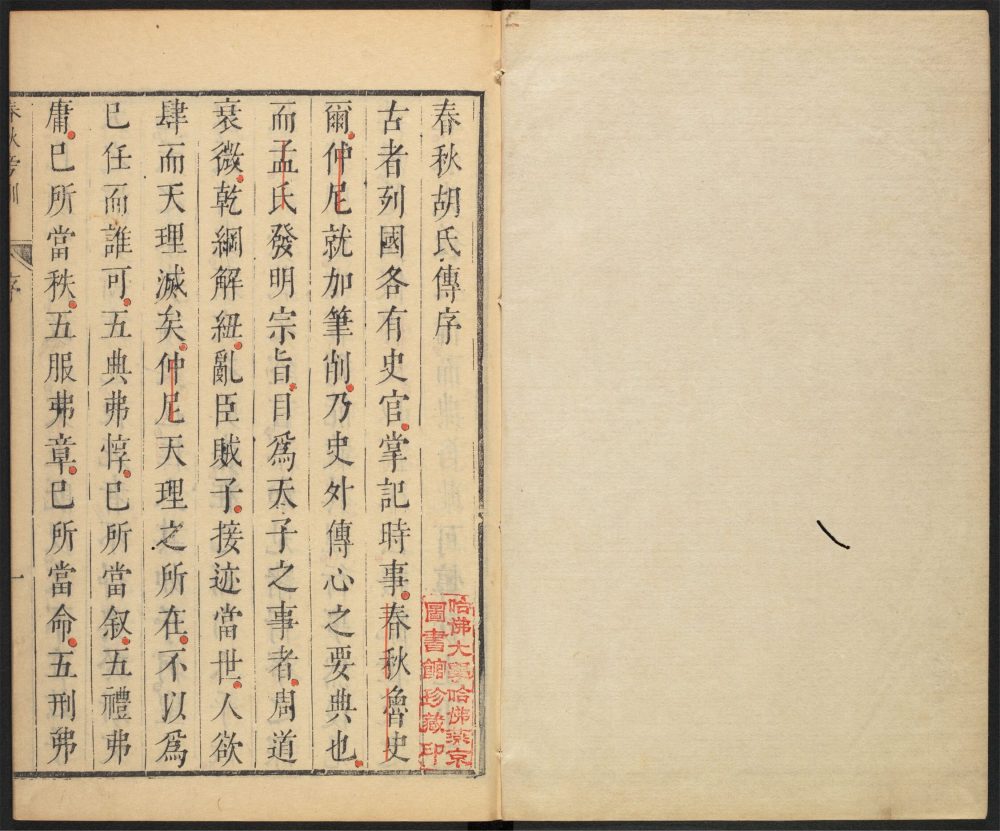 春秋胡氏傳序
古者列國各有史官掌記時事春秋魯史
爾仲尼就加筆削乃史外傳心之要典也
而孟氏發明宗旨目爲天子之事者周道
衰微乾綱解紐亂臣賊子接迹當世人欲
肆而天理滅矣仲尼天理之所在不以爲
已任而誰可五典弗惇已所當叙五禮弗
庸已所當秩五服弗章已所當命五刑弗
春秋考訓
序
一
哈佛大學哈佛燕京
圖書館珍藏印